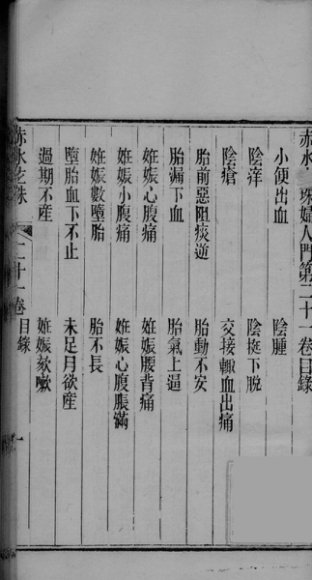 赤水 珠婦人門第二十一卷目錄
小便出血 陰腫
陰痒 陰挺下脫
陰瘡 交接輒血出痛
胎前惡阻痰逆 胎動不安
胎漏下血 胎氣上逼
姙娠心腹痛 姙娠腰背痛
姙娠小腹痛 姙娠心腹脹滿
姙娠數墮胎 胎不長
墮胎血下不止 未足月欲産
過期不产 姙娠欬嗽
赤水玄珠 二十一卷目錄 一